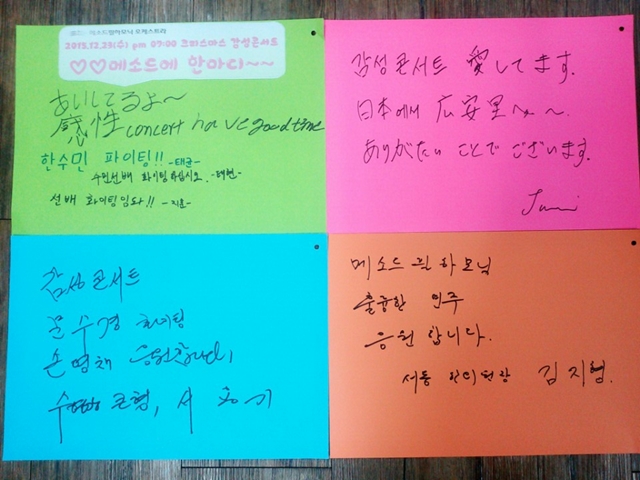 메소드필하모닉 오케스트라
2015.12.23(수) pm 07:00 크리스마스 감성콘서트
♡♡메소드에 한마디~~
あいしてるよ~
感性 concert have good time
한수민 파이팅!! -태균-
수민선배 화이팅하십시오. -태현-
선배 화이팅입니다!! -지훈-
감성콘서트 愛してます.
日本에서 広安里へ~.
ありがたい ことで ございます.
감성콘서트
문수경 화이팅
손영채 응원합니다!
메소드 필하모닉
훌륭한 연주
응원합니다.
서동 김지협.